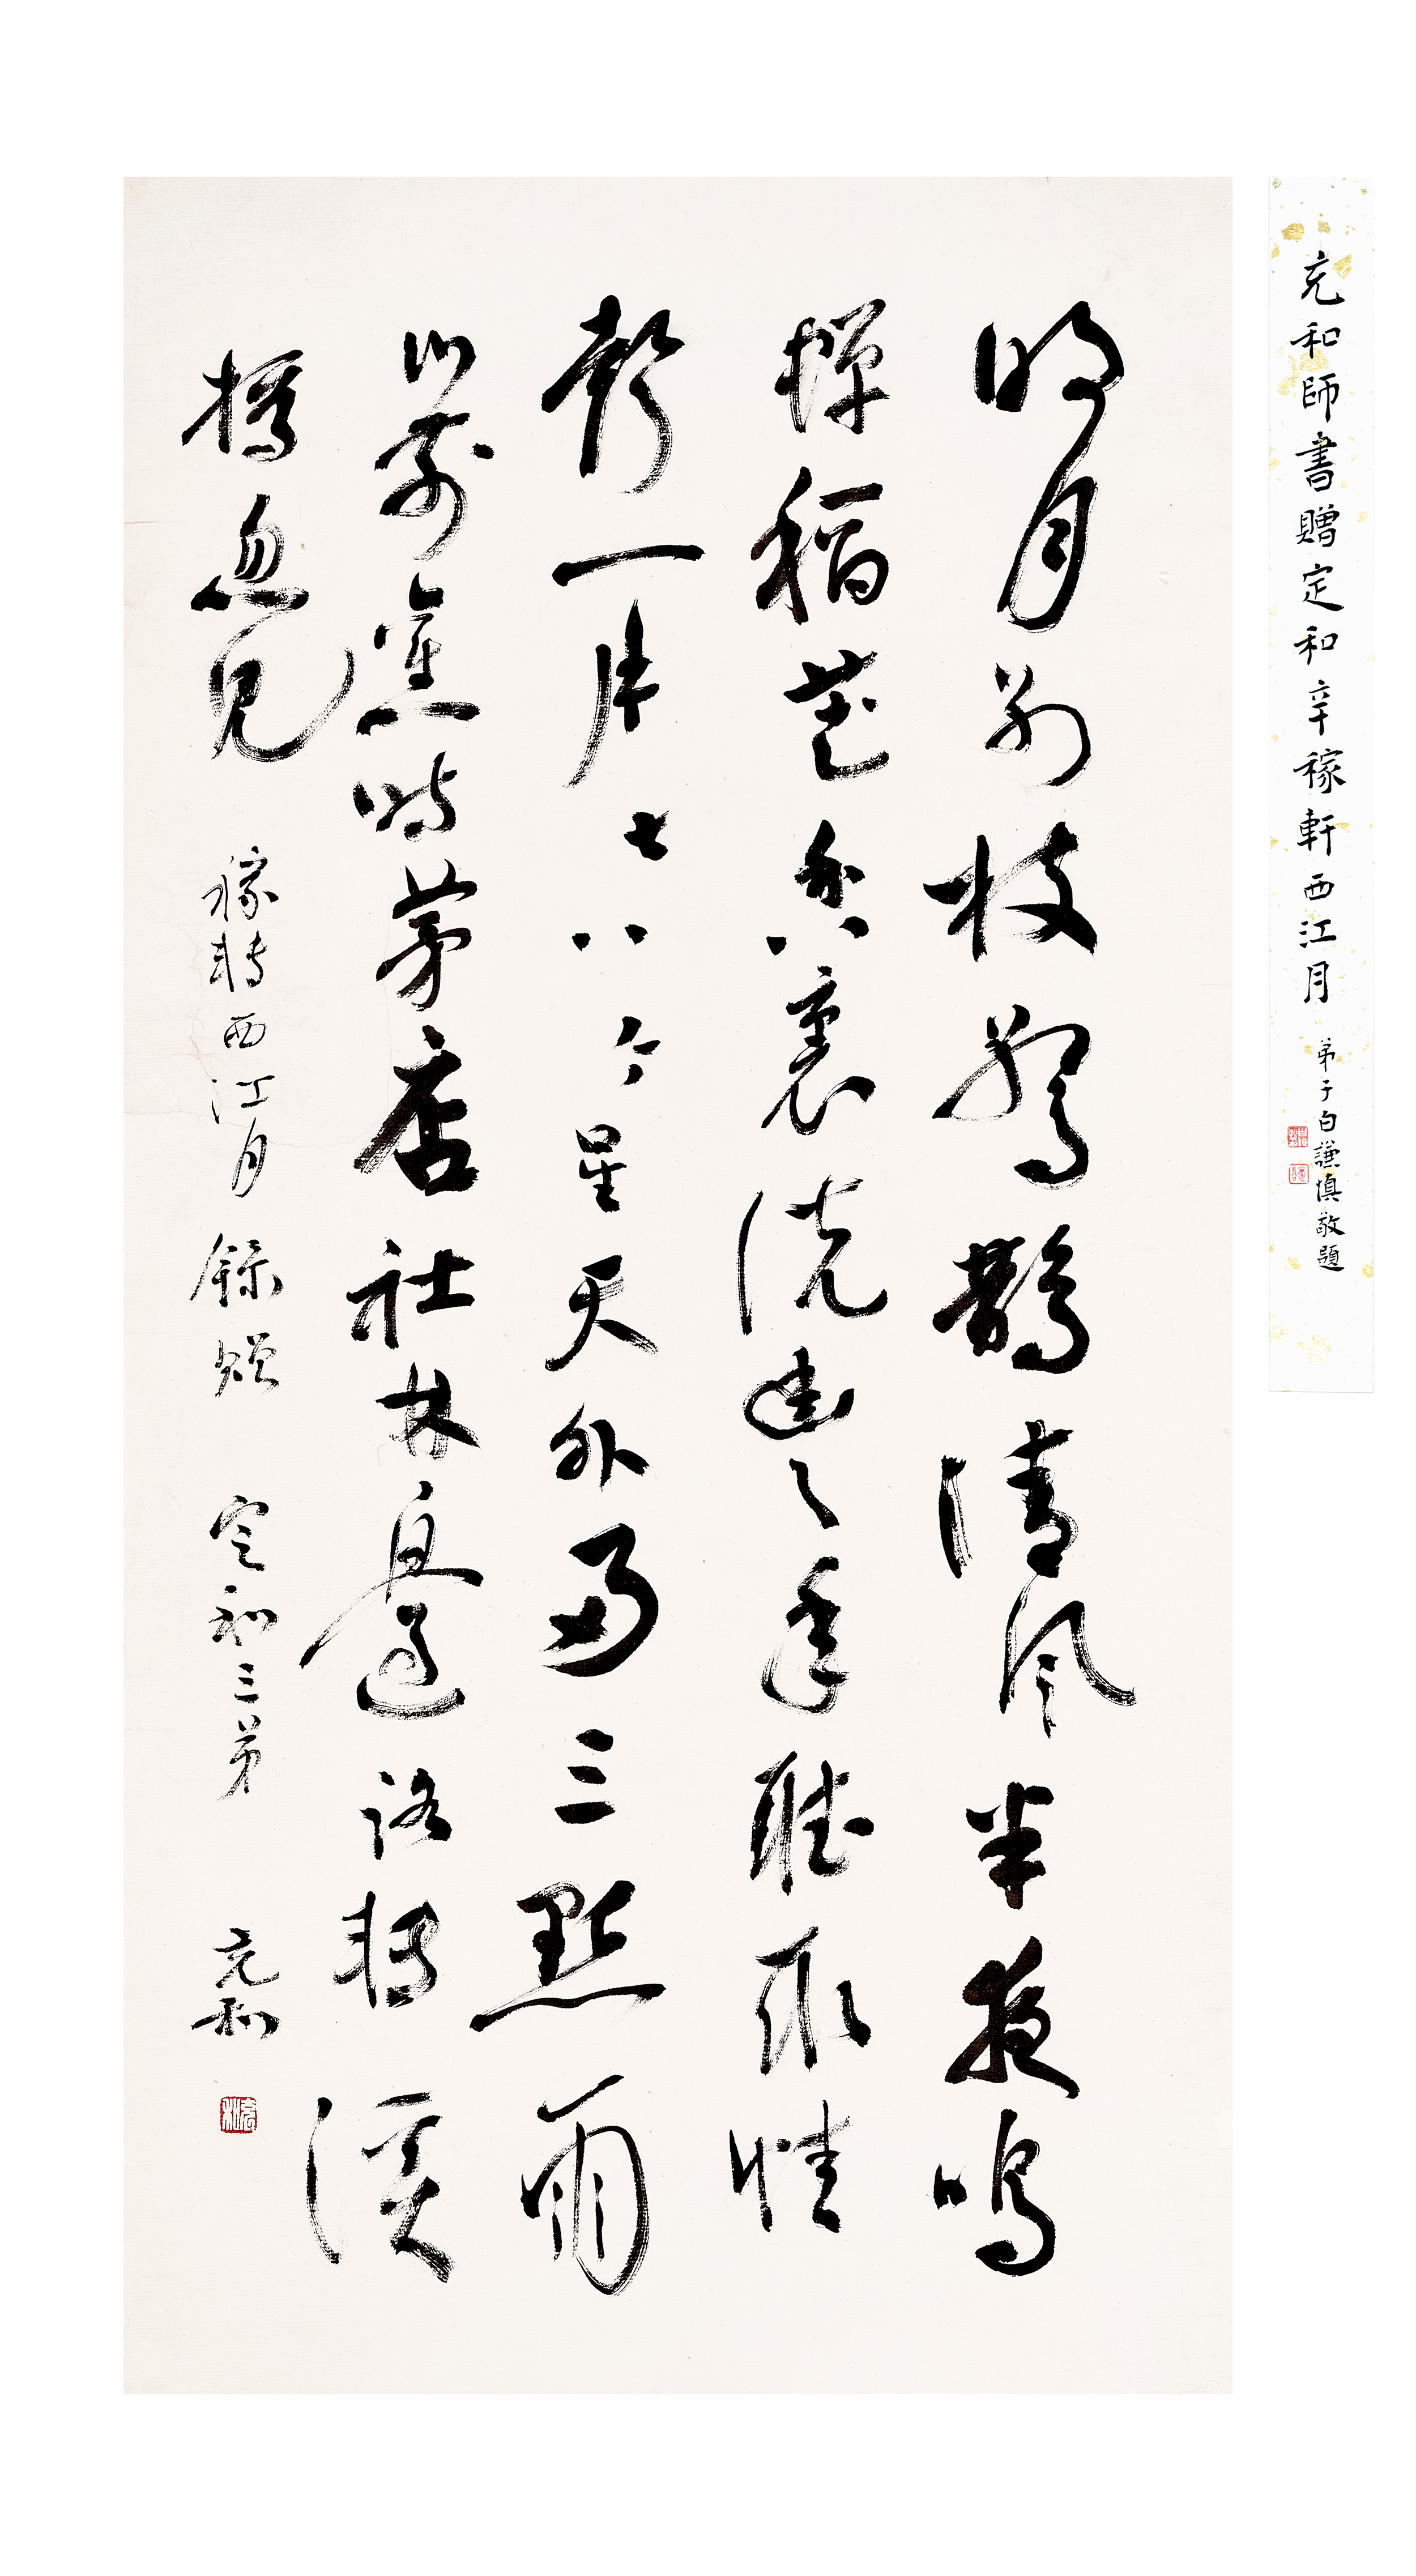 充和師書贈定和辛稼軒西江月 弟子白謙慎敬題
明月別枝驚鵲清風半夜鳴
蟬稻花香裏說豐年聽取蛙
聲一片七八个星天外兩三點雨
山前舊時茅店社林邊路轉溪
橋忽見 稼軒西江月 錄贈 定和三弟 充和